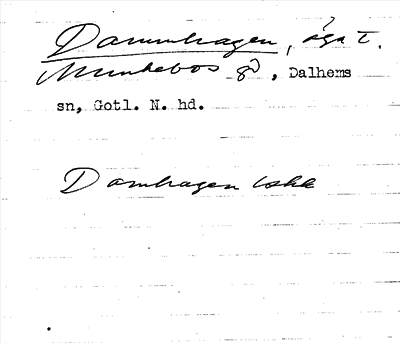 Dammhagen, äga t.
Munkebos gd, Dalhems
sn, Gotl. N. hd.
Domhagen Lskk